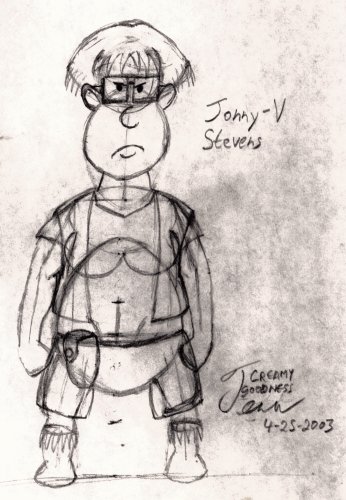 Jonny-V
Stevens
CREAMY
GOODNESS
4-25-2003